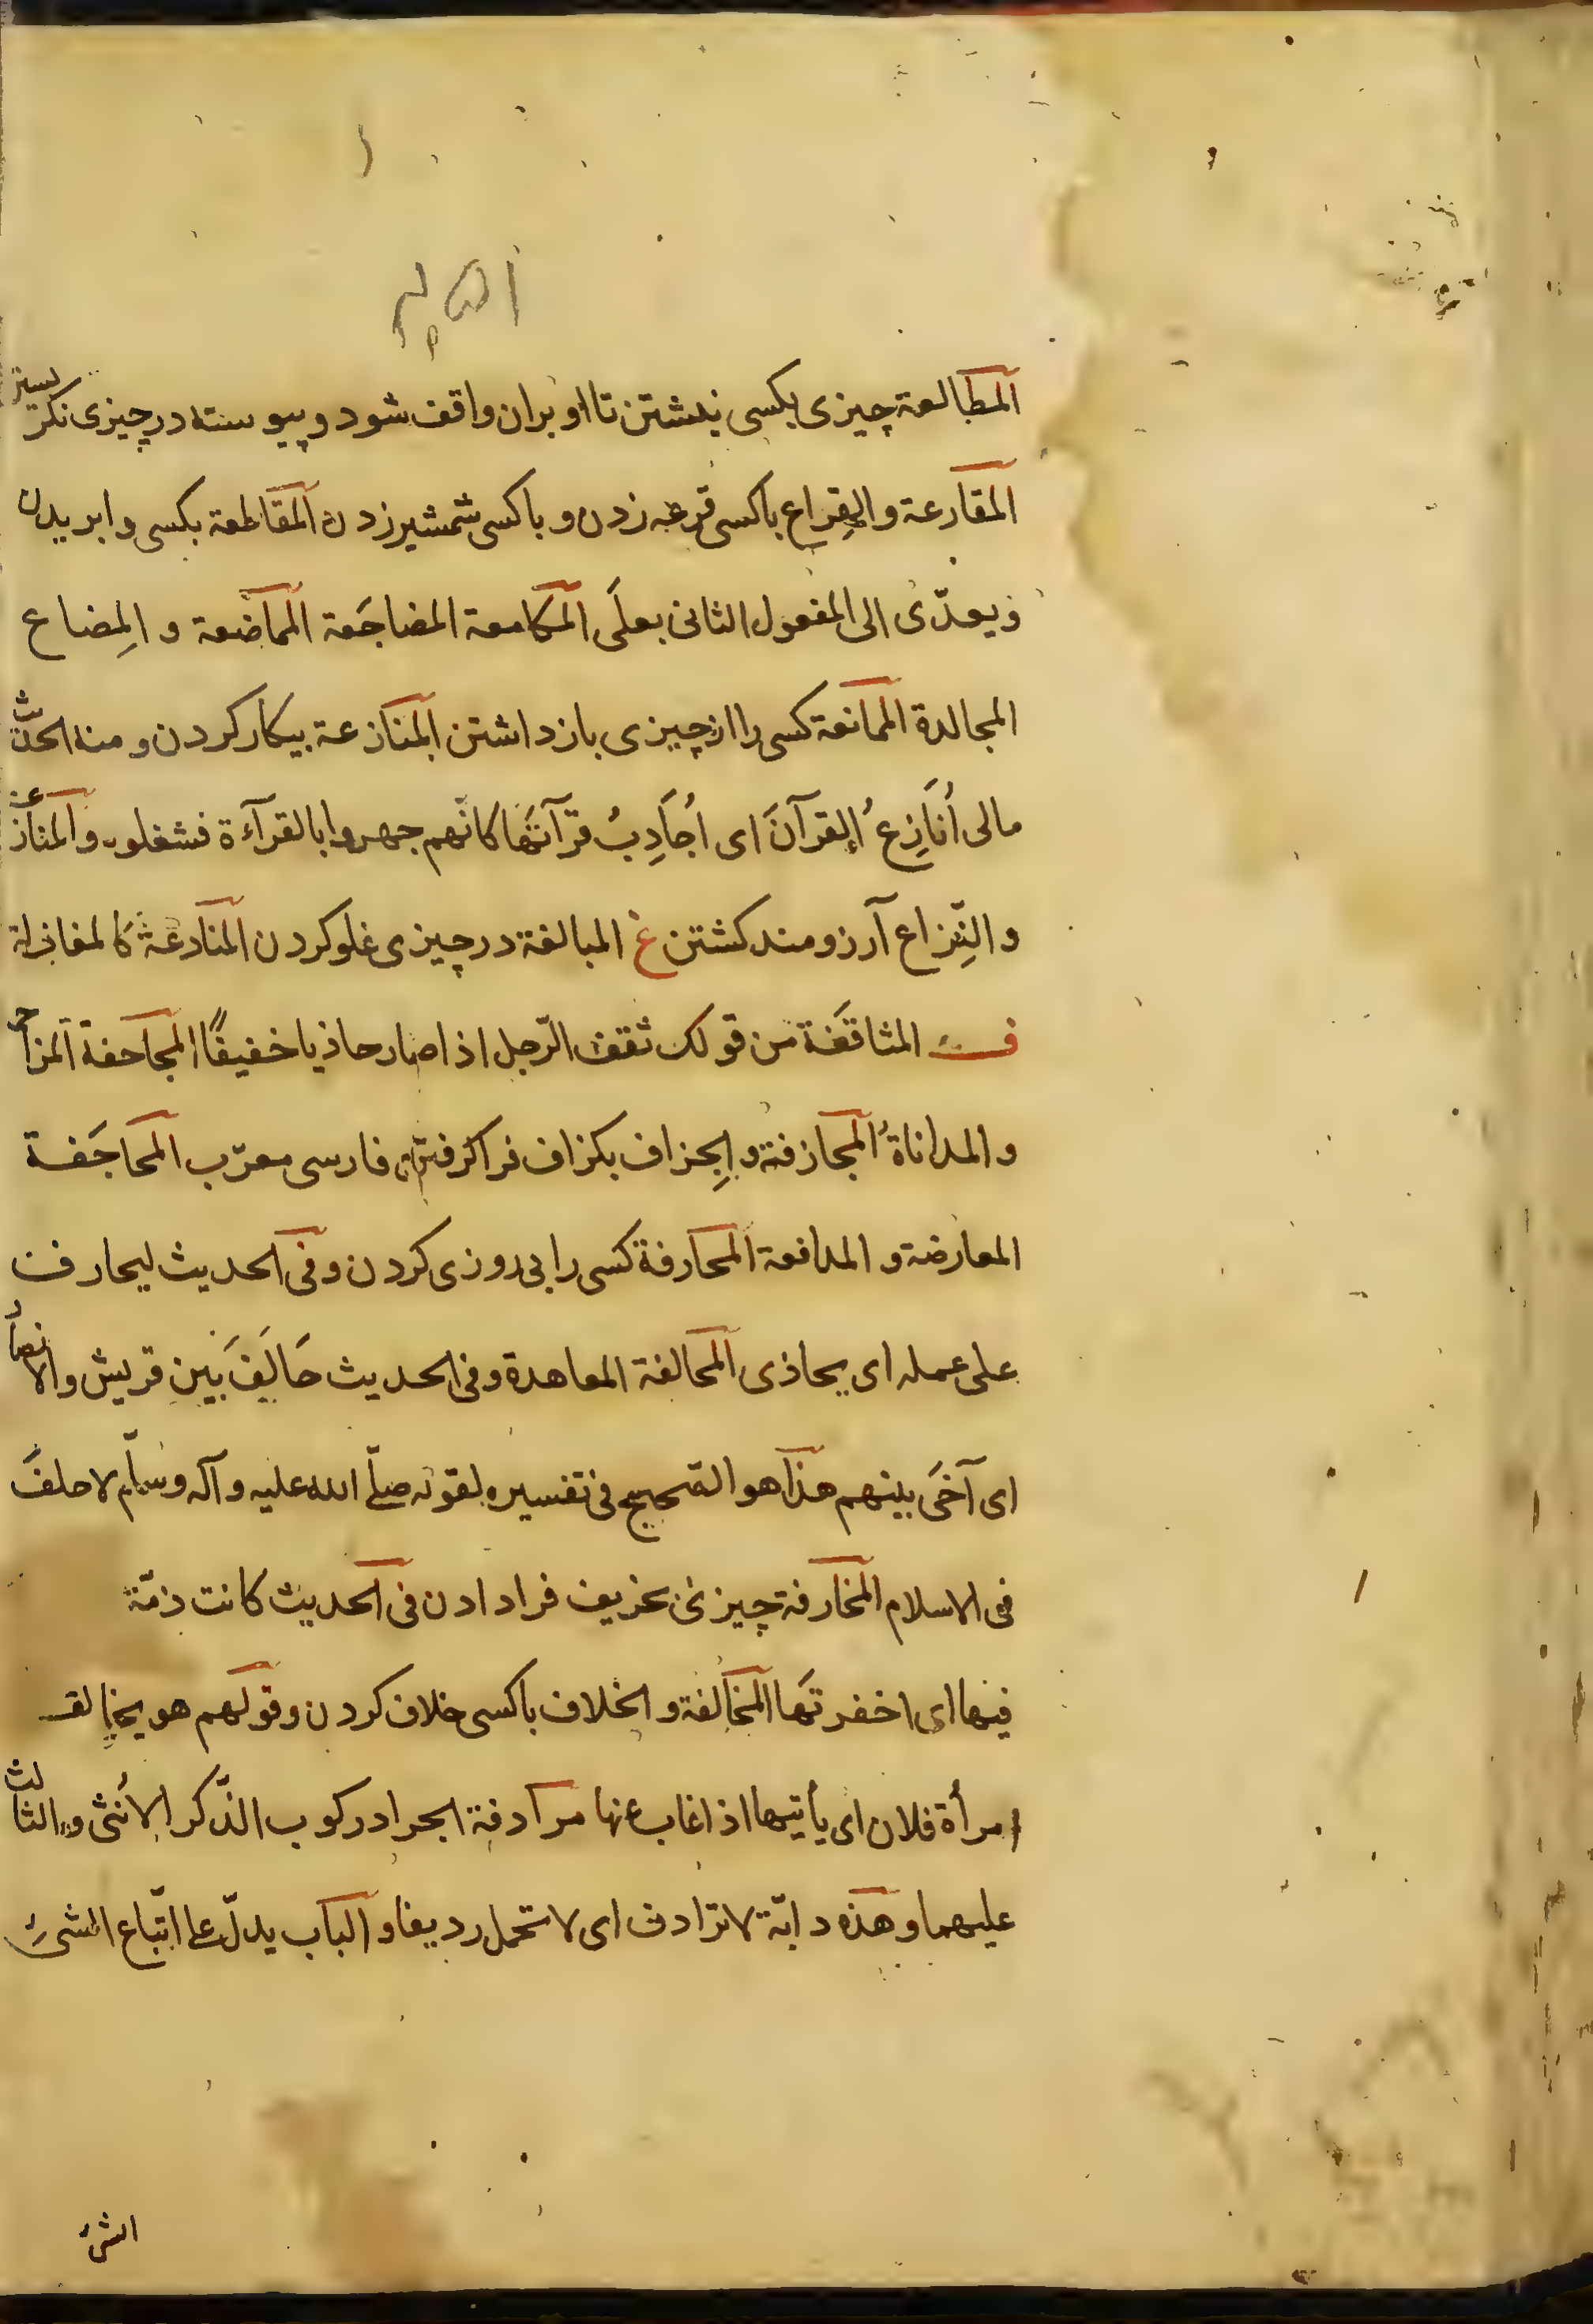 المطالعة چیزی بکسی نبشتن تا او بران واقف شود و پیوسته در چیزی نکریستن
المقارعة والقِراع باکسی قرعه زدن و باکسی شمشیر زدن المقاطعة بکسی وابریدن
ویعدّی الی المفعول الثانی بعلَی المکامعة المضاجَعة المماضعة و المِضاع
المجالدة الممانعة کسی را از چیزی بازداشتن المنازعة بیکار کردن و منه الحدیث
مالی أُنَازِعُ القرآنَ ای أُجَاذِبُ قرآئتَها کانّهم جهروا بالقرآءة فشغلوه والمنازعة
و النِّزاع آرزومند کشتن غ المبالغة در چیزی غلو کردن المنادغة کالمغازلة
ف المثاقَفَة من قولک ثقف الرّجل اذا صار حاذیا خفیفًا المجاحفة المزاحمة
و المداناةُ المجازفة و الجِزاف بکزاف فرا کرفتن فارسی معرّب المحاجَفة
المعارضة و المدافعة المحارفة کسی را بی روزی کردن و فی الحدیث لیحارف
علی عمله ای یحاذی المحالفة المعاهدة و فی الحدیث حَالَفَ بَین قریش والانصار
ای آخَی بینهم هذا هو الصّحیح فی تفسیره لقوله صلّی الله علیه وآله وسلّم لا حلفَ
فی الاسلام المخارفة چیزی بخریف فرا دادن فی الحدیث کانت ذمّة
فیها ای اخفرتها المخالفة و الخلاف باکسی خلاف کردن و قولهم هو یخالف
امرأة فلان ای یأتیها اذا غاب عنها مرادفة الجراد رکوب الذّکر الاُنثی والثالث
علیهما و هذه دابّة لا ترادف ای لا تحمل ردیفا و الباب یدلّ علی اتّباع الشیٔ
الشیٔ